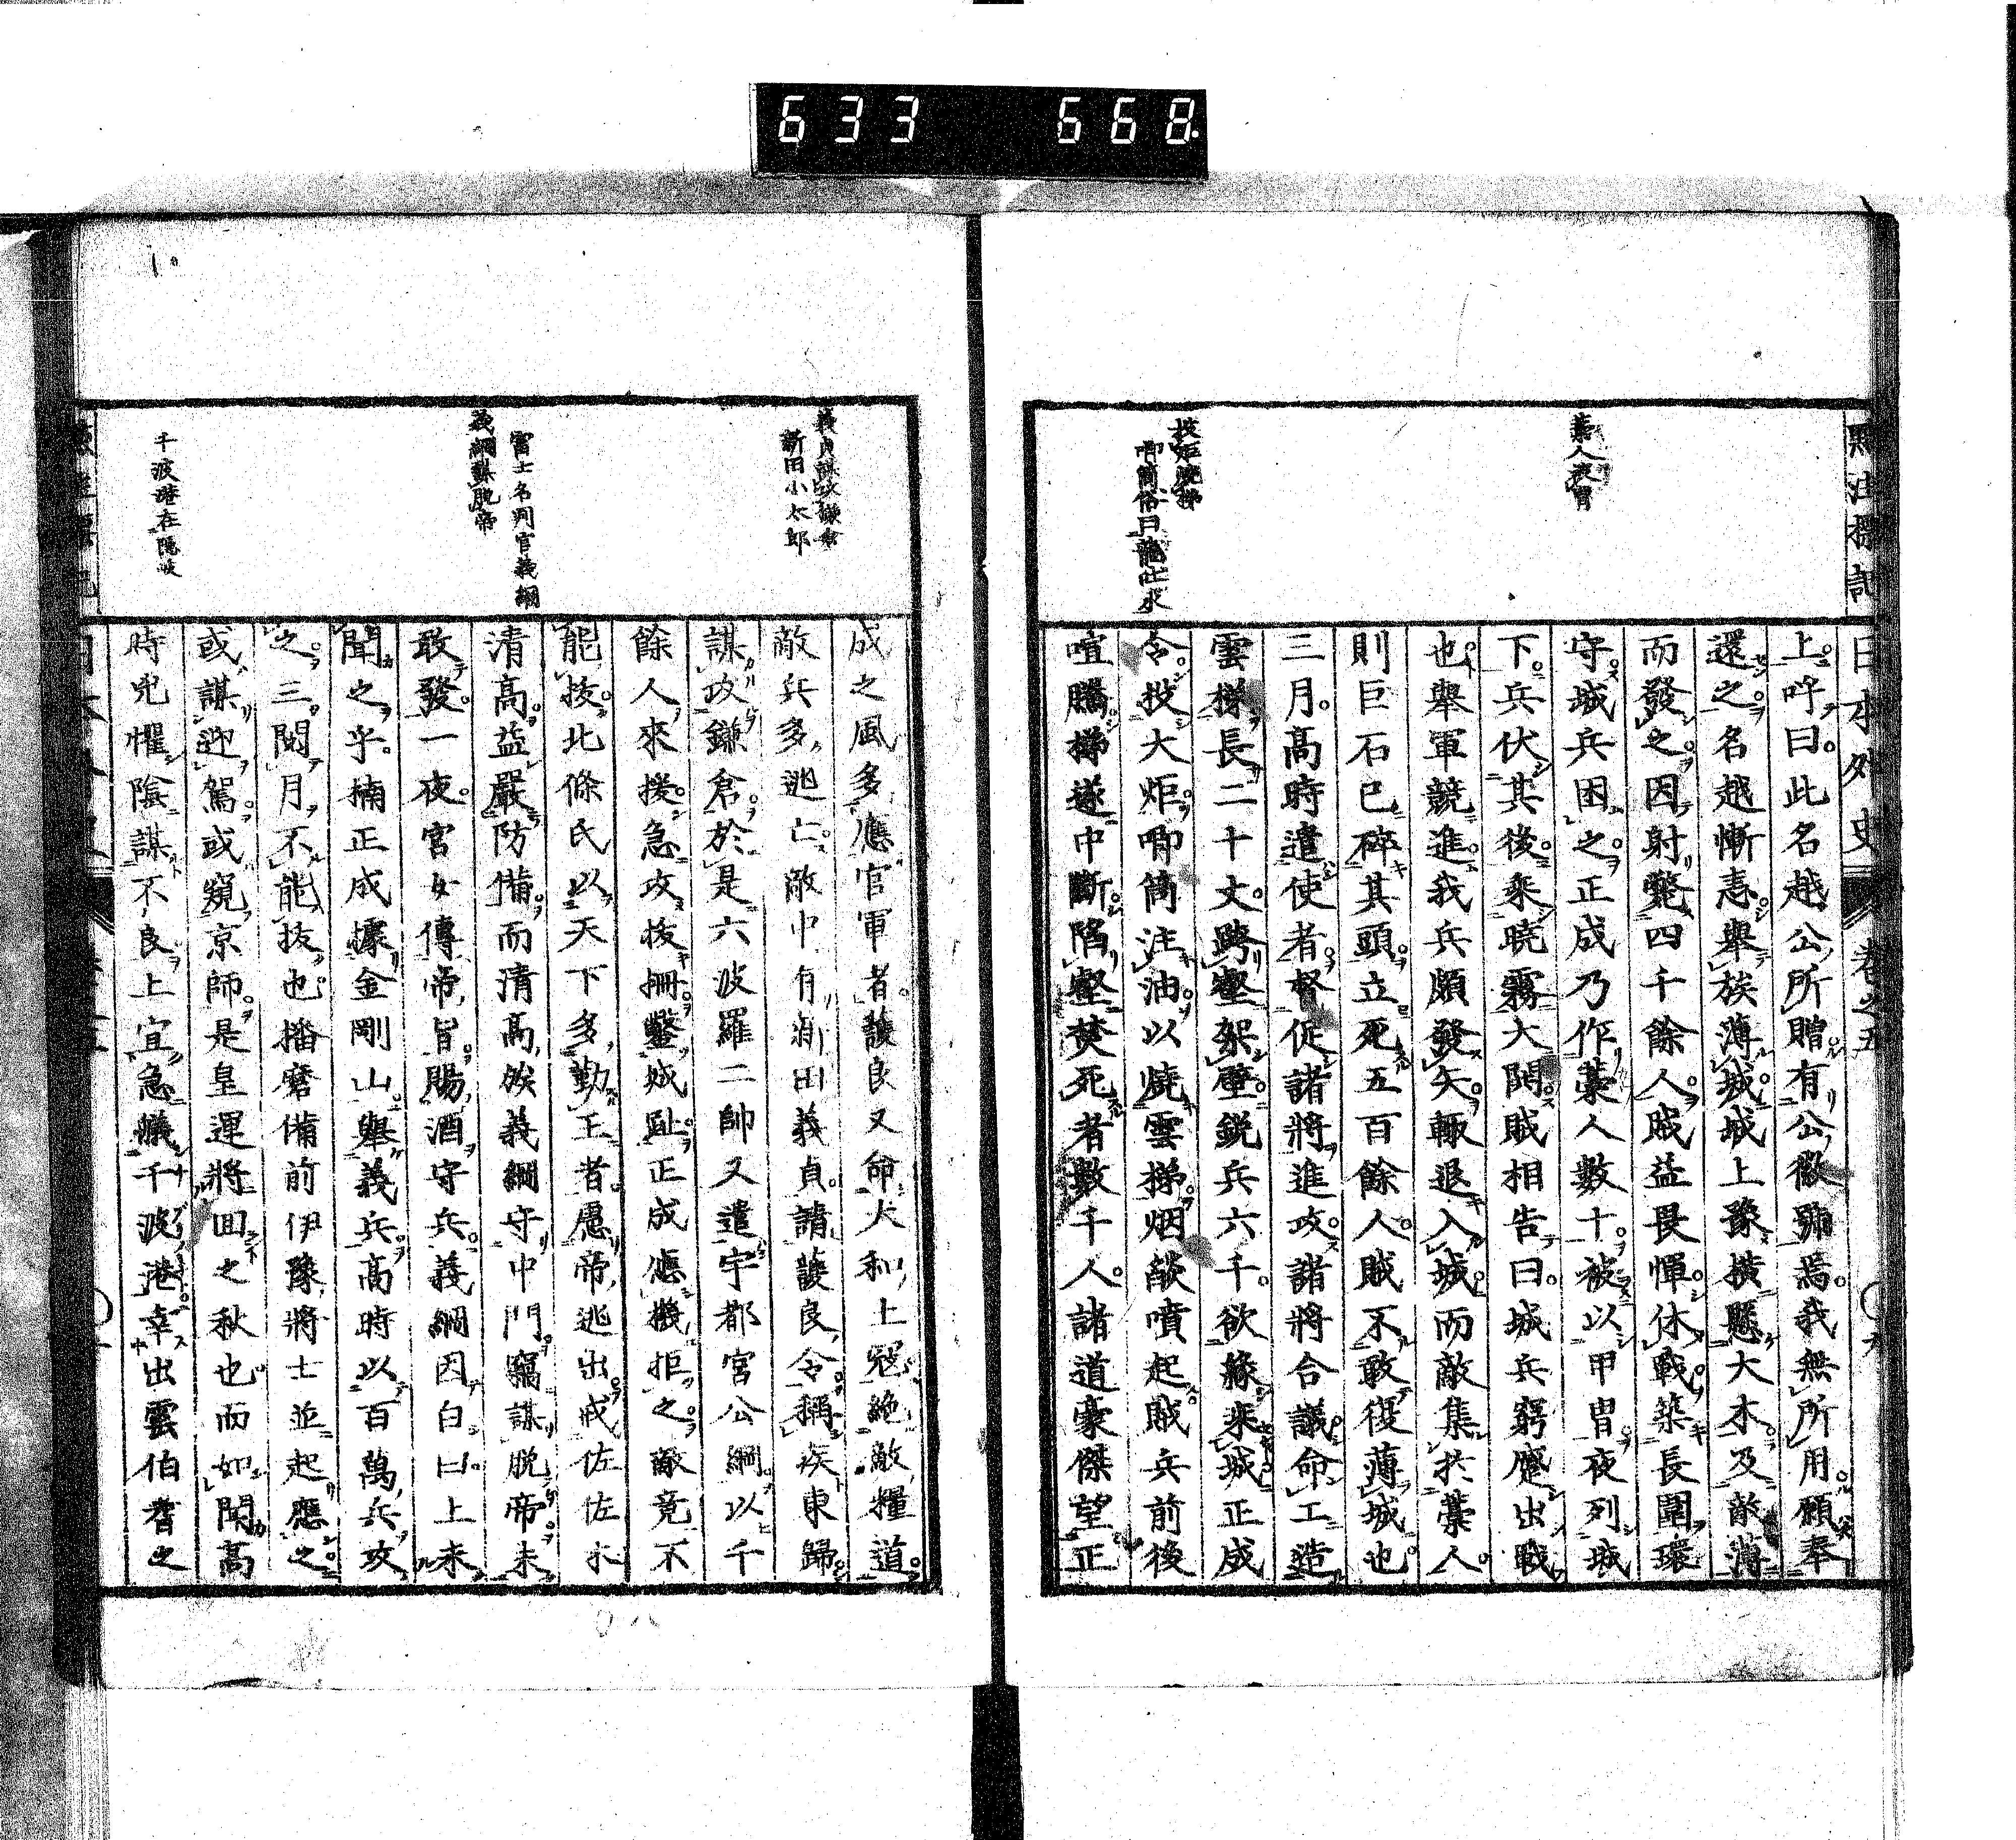 633 668
點注標記
日本外史 卷之五 〇九
藁人夜冑
投炬燒梯
喞筒俗曰龍吐水
上呼曰此名越公所贈有公徽號焉我無所用願奉
還之名越慚恚舉族薄城城上豫橫懸大木及敵薄
而發之因射斃四千餘人賊益畏憚休戰築長圍環
守城兵困之正成乃作藁人數十被以甲冑夜列城
下兵伏其後乘曉霧大鬨賊相告曰城兵窮蹙出戰
也舉軍競進我兵頗發矢輙退入城而敵集於藁人
則巨石已碎其頭立死五百餘人賊不敢復薄城也
三月高時遣使者督促諸將進攻諸將合議命工造
雲梯長二十丈跨壑架壁鋭兵六千欲緣來城正成
令投大炬喞筒注油以燒雲梯烟燄噴起賊兵前後
喧騰梯遂中斷陷壑焚死者數千人諸道豪傑望正
義貞謀攻鎌倉
新田小太郎
富士名判官義綱
義綱謀脫帝
千波港在隱岐
成之風多應官軍者護良又命大和上寇絶敵糧道
敵兵多逃亡敵中有新田義貞請護良令稱疾東歸
謀攻鎌倉於是六波羅二帥又遣宇都宮公綱以千
餘人來援急攻拔柵鑿城趾正成應機拒之敵竟不
能拔北條氏以天下多勤王者慮帝逃出戒佐佐木
清高益嚴防備而清高族義綱守中門竊謀脫帝未
敢發一夜宮女傳帝旨賜酒守兵義綱因白曰上未
聞之乎楠正成據金剛山舉義兵高時以百萬兵攻
之三閱月不能拔也播磨備前伊豫將士並起應之
或謀迎駕或窺京師是皇運將回之秋也而如聞高
時兇懼陰謀不良上宜急艤千波港幸出雲伯耆之